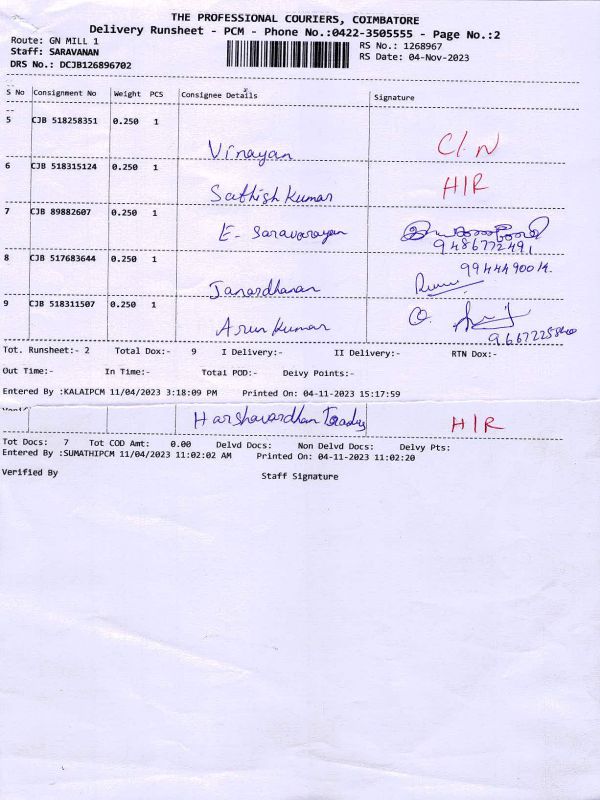 THE PROFESSIONAL COURIERS, COIMBATORE
Delivery Runsheet - PCM - Phone No.:0422-3505555 - Page No.:2
Route: GN MILL 1 RS No.: 1268967
Staff: SARAVANAN RS Date: 04-Nov-2023
DRS No.: DCJB126896702
S No Consignment No Weight PCS Consignee Details Signature
5 CJB 518258351 0.250 1
Vinayan C/N
6 CJB 518315124 0.250 1
Sathish Kumar H/R
7 CJB 89882607 0.250 1
E- Saravanayan
9486772491
8 CJB 517683644 0.250 1
Janardhanan
9 CJB 518311507 0.250 1
Arun Kumar
Tot. Runsheet:- 2 Total Dox:- 9 I Delivery:- II Delivery:- RTN Dox:-
Out Time:- In Time:- Total POD:- Deivy Points:-
Entered By :KALAIPCM 11/04/2023 3:18:09 PM Printed On: 04-11-2023 15:17:59
Harshavardhan Tradig H/R
Tot Docs: 7 Tot COD Amt: 0.00 Delvd Docs: Non Delvd Docs: Delvy Pts:
Entered By :SUMATHIPCM 11/04/2023 11:02:02 AM Printed On: 04-11-2023 11:02:20
Verified By Staff Signature